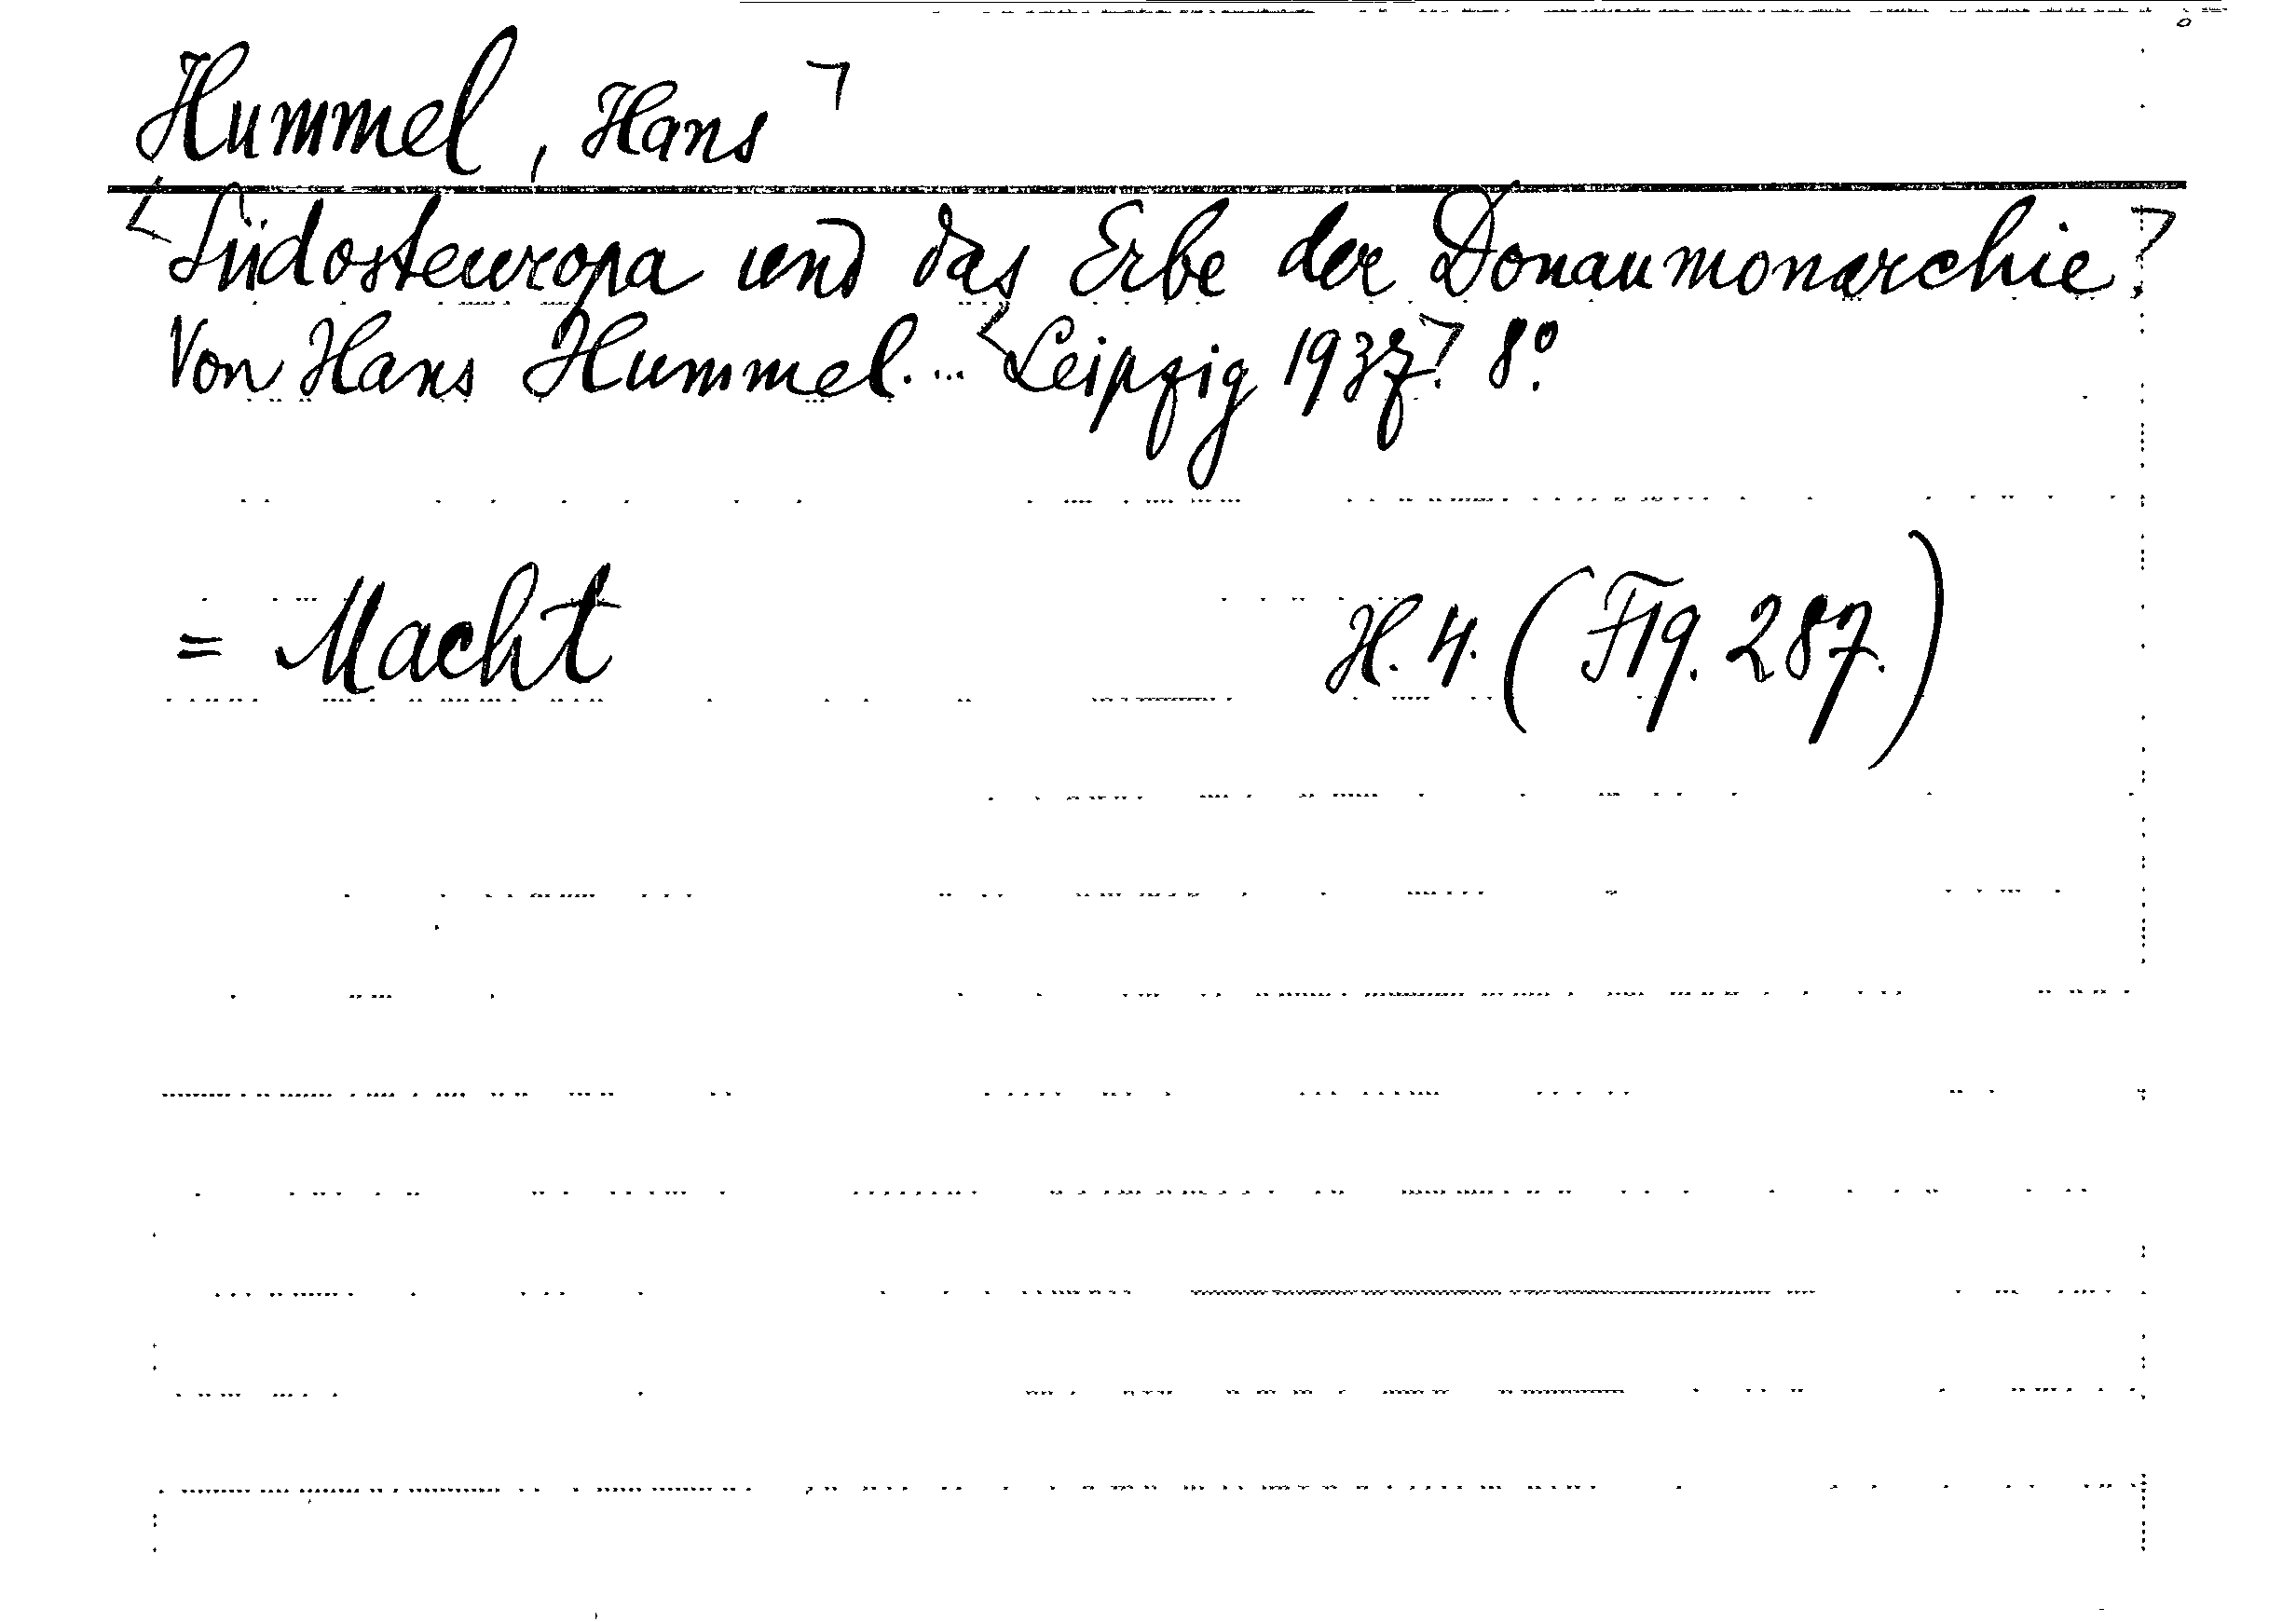 Hummel, Hans
Südosteuropa und das Erbe der Donaumonarchie.
Von Hans Hummel. ... Leipzig 1937. 8°.
= Macht H. 4. (Flg. 287.)